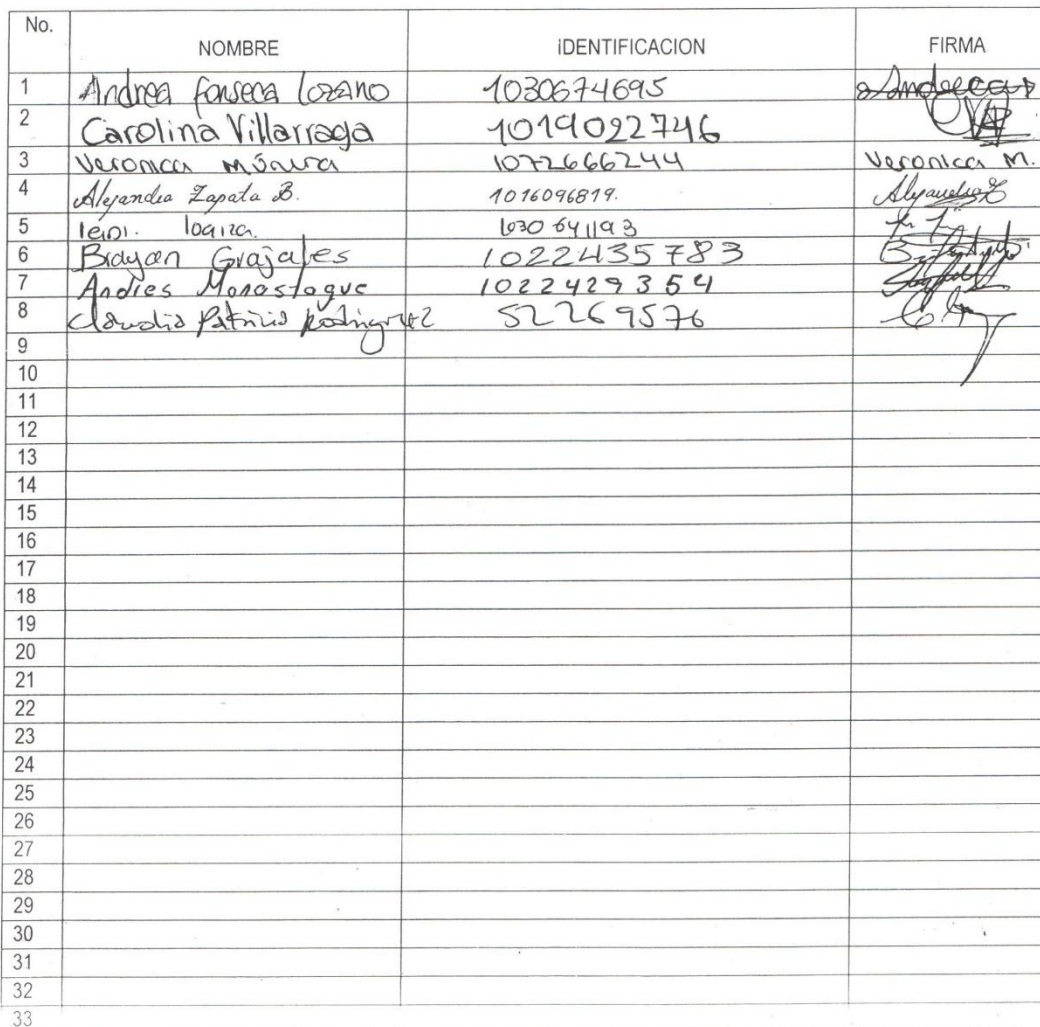 No. NOMBRE IDENTIFICACION FIRMA
1 Andrea Fonseca Lozano 1030674695
2 Carolina Villarraga 1019022746
3 Veronica Múnera 1072666244 Veronica M.
4 Alejandra Zapata B. 1016096819. Alejandra Z
5 loaiza. 1030641193
6 Brayan Grajales 1022435783
7 Andres Monastoque 1022429354
8 Claudia Patricia Rodriguez 52269576
9
10
11
12
13
14
15
16
17
18
19
20
21
22
23
24
25
26
27
28
29
30
31
32
33